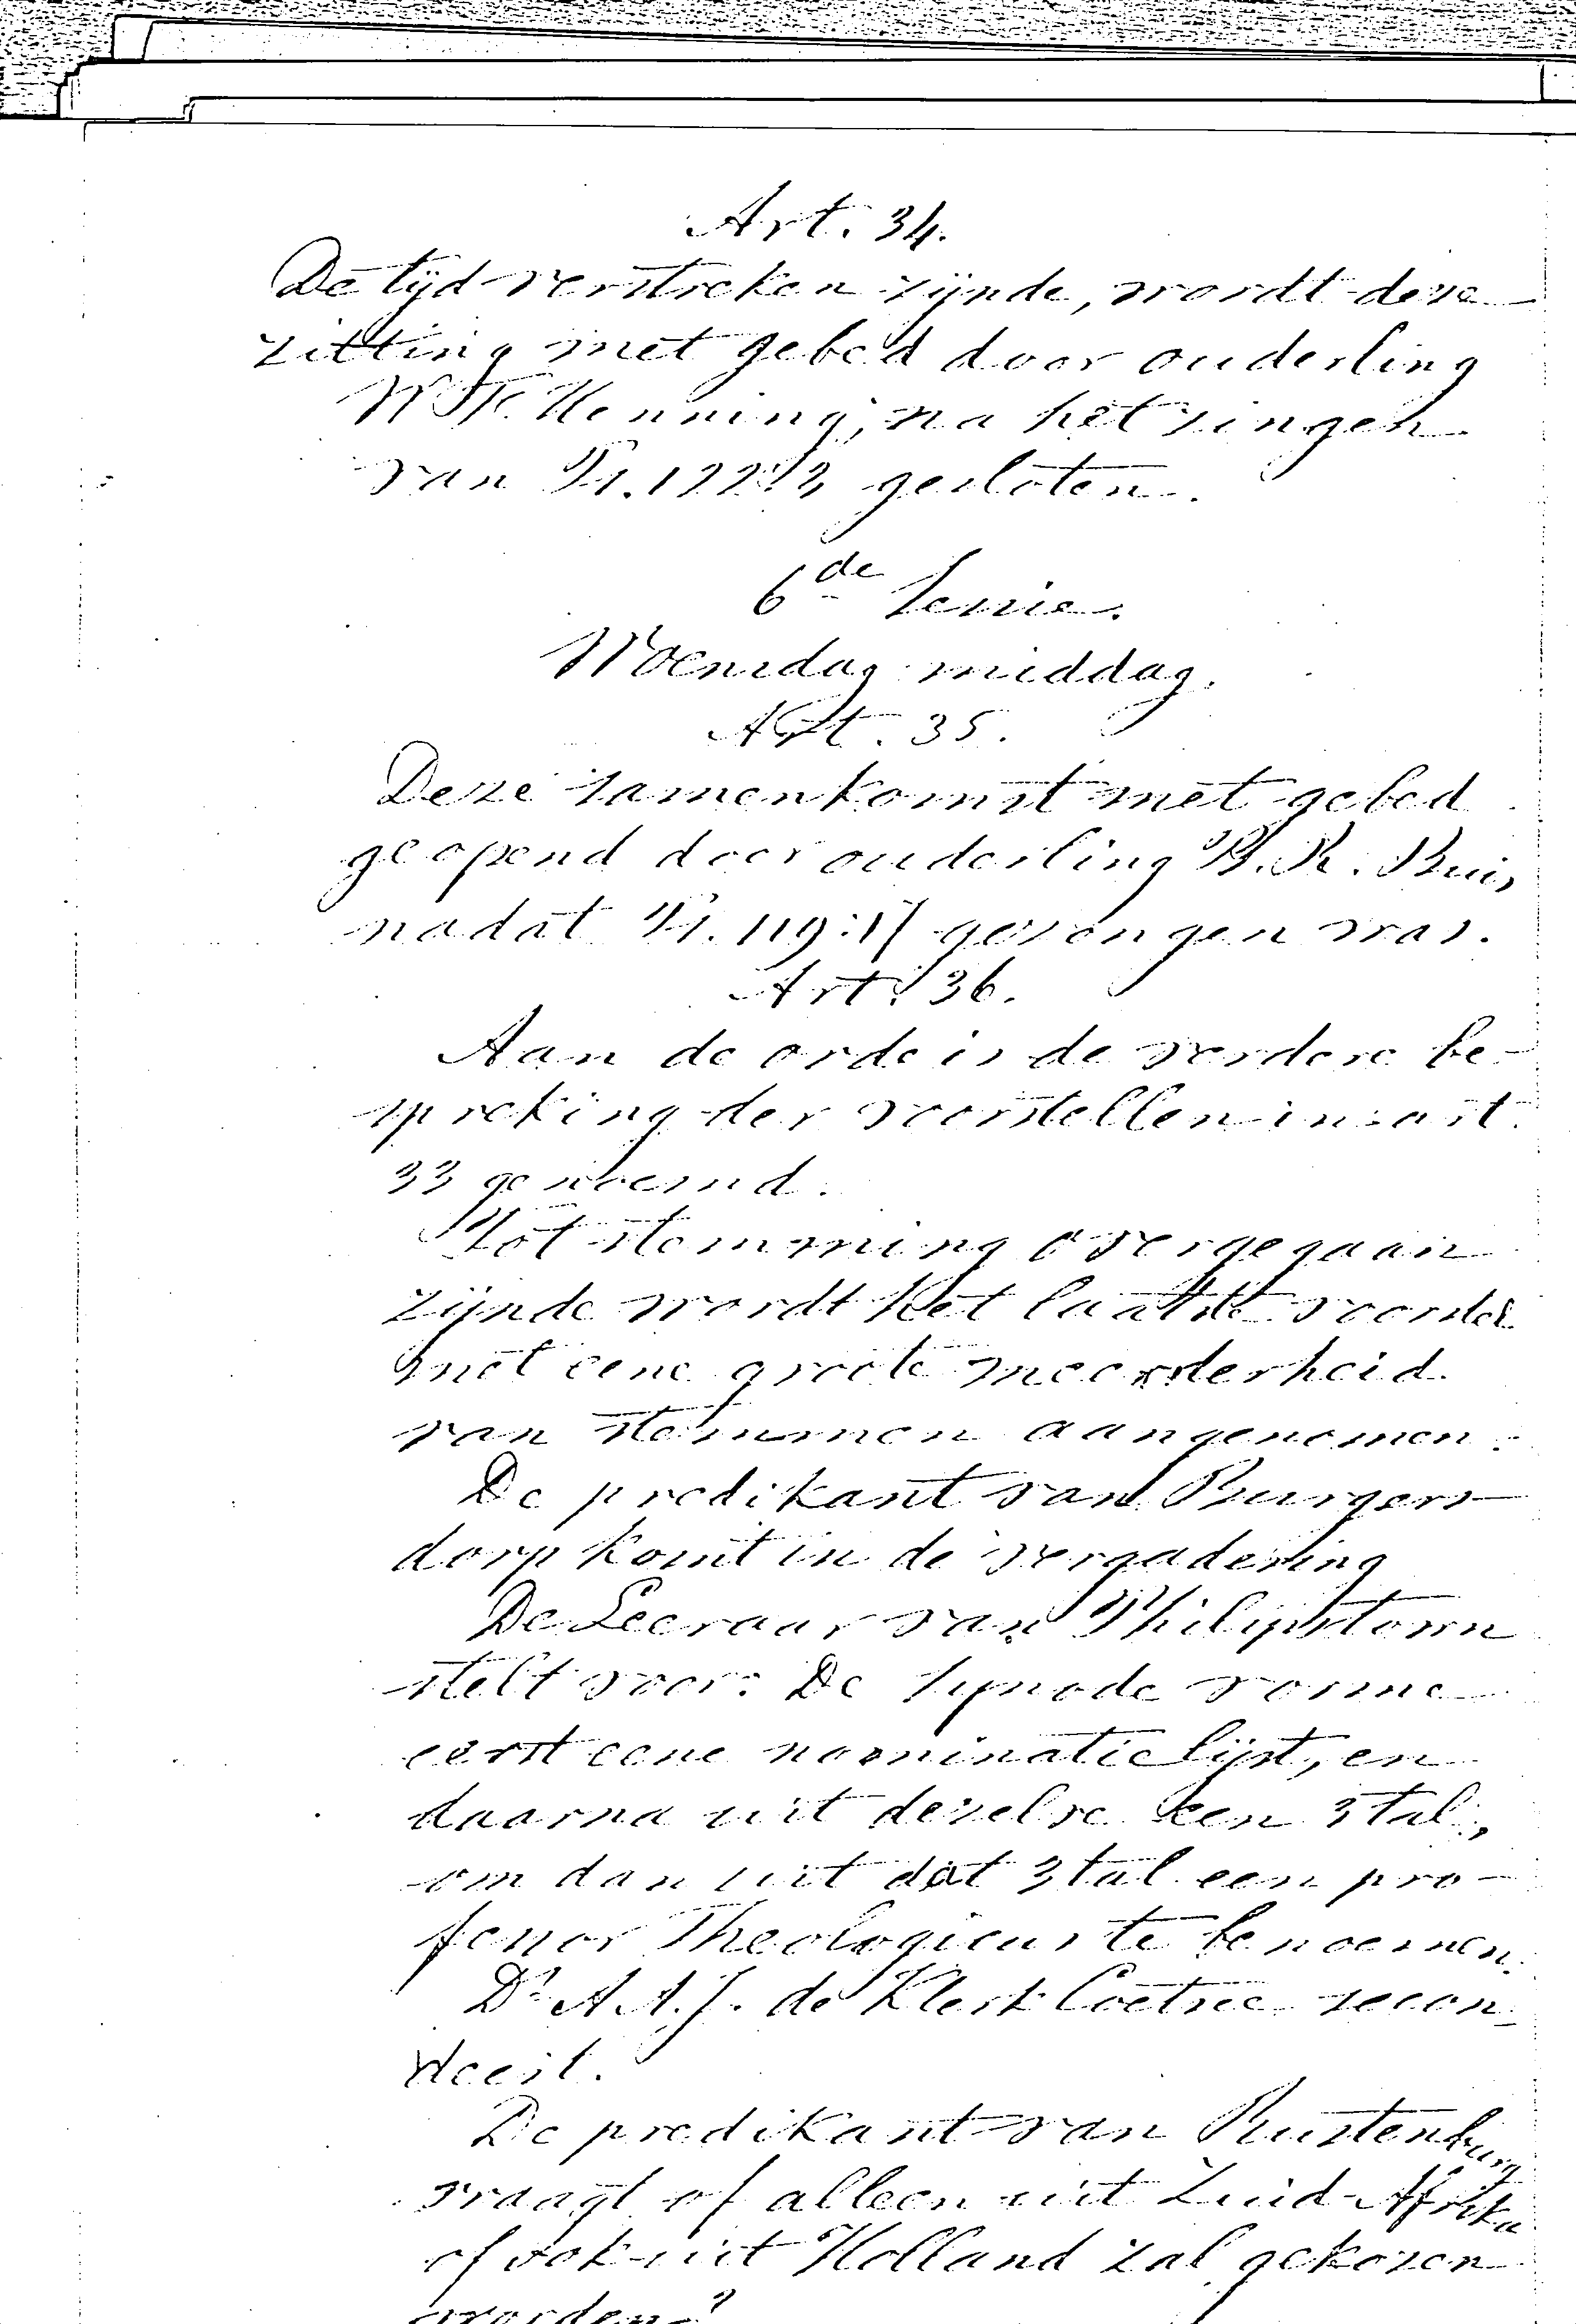 Art. 34.
De tijd verstreken zijnde, wordt deze
zitting met gebed door ouderling
Henning, na het zingen
van Ps. 122:3 gesloten.
6de Sessie.
Woensdag middag.
Art. 35.
Deze samenkomst met gebed
geopend door ouderling B. R. Buis,
nadat Ps. 119: gezongen was.
Art. 36.
Aan de orde is de verdere be-
spreking der voorstellen in art.
33 genoemd.
Tot stemming overgegaan
zijnde wordt het laatste voorstel
met eene groote meerderheid
van stemmen aangenomen.
De predikant van Burgers-
dorp komt in de vergadering
De Leeraar van Philipstown
stelt voor: De Synode vorme
eerst eene nominatie lijst, en
daarna uit dezelve een 3tal,
om dan uit dat 3tal een pro-
fessor Theologicus te benoemen.
Ds A. A. J. de Klerk Coetzee secon-
deert.
De predikant van Rustenburg
vraagt of alleen uit Zuid-Afrika
of ook uit Holland zal gekozen
worden?